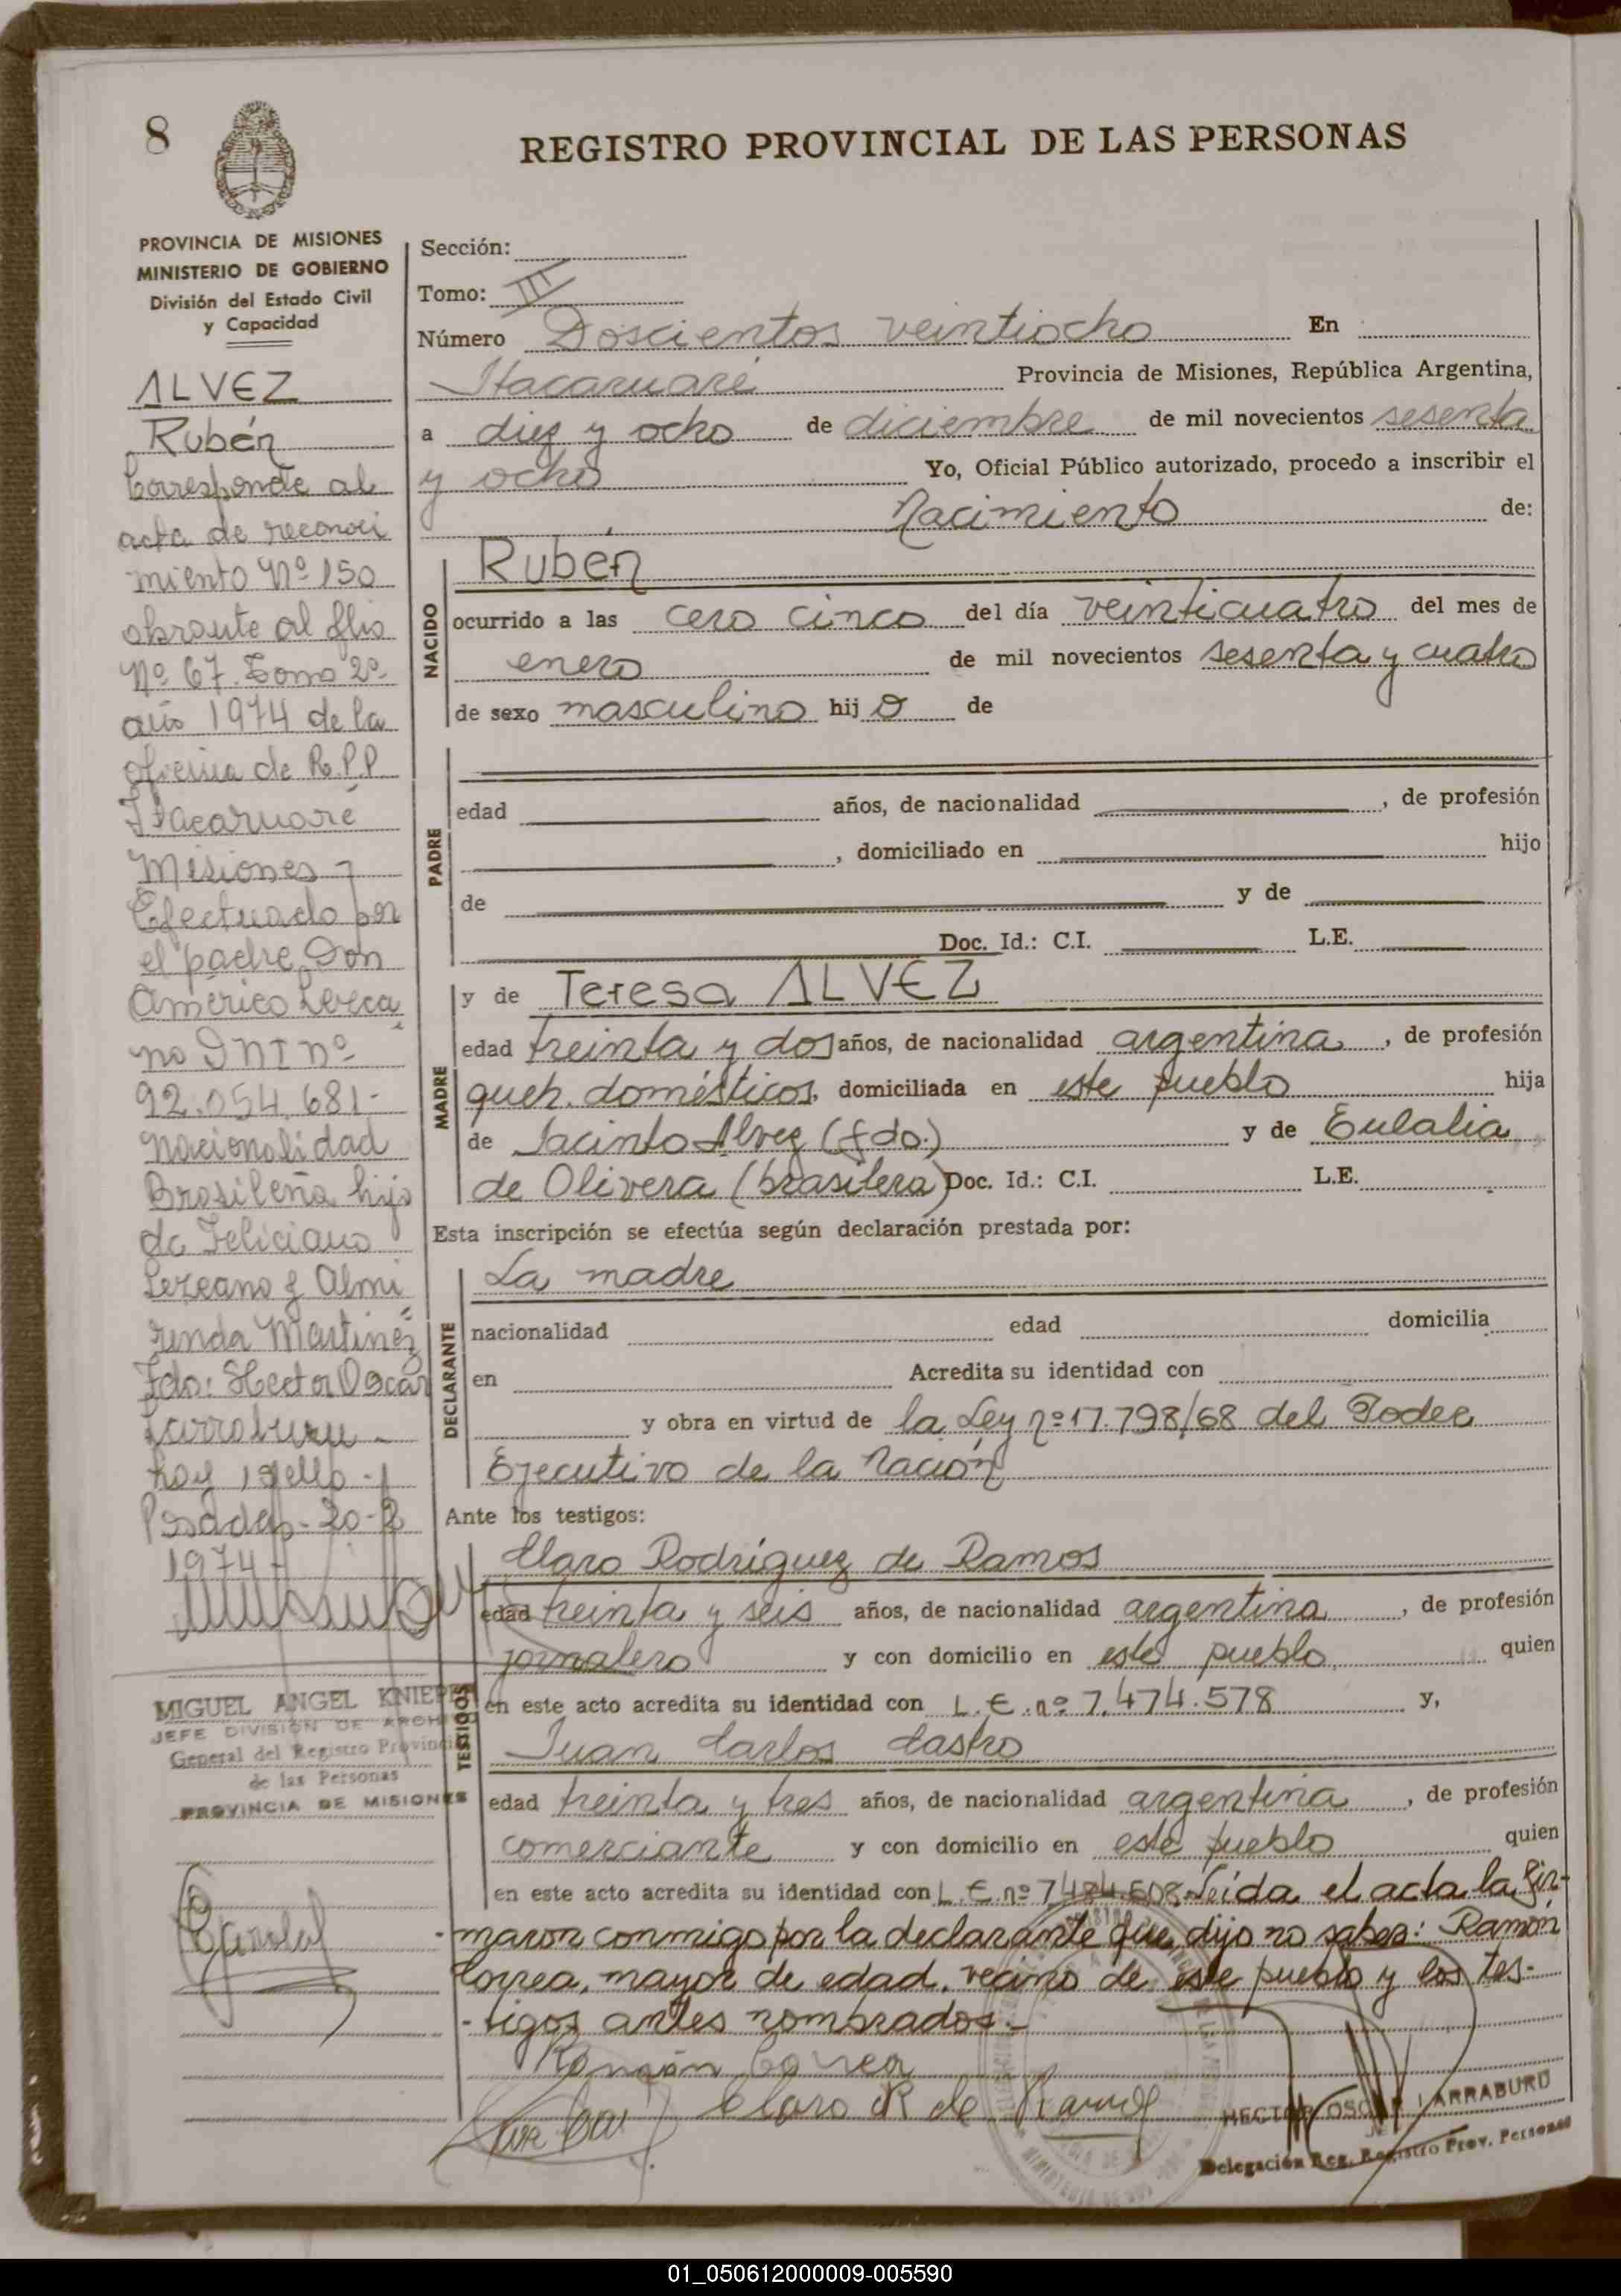 8
REGISTRO PROVINCIAL DE LAS PERSONAS
PROVINCIA DE MISIONES
MINISTERIO DE GOBIERNO
División del Estado Civil
y Capacidad
ALVEZ
Rubén
Corresponde al
acta de reconoci
miento Nº 150
obrante al flio
Nº 67. Tomo 2º
año 1974 de la
oficina de R.P.P
Itacaruaré
Misiones -
Efectuado por
el padre Don
Américo Lezca
no DNI nº
92.054.681-
nacionalidad
Brasileña hijo
de Feliciano
Lezcano y Almi
renda Martinez
Fdo: Hector Oscar
Larraburu -
hay 1 sello -
Posadas - 20-2
1974 -
MIGUEL ANGEL KNIEPE
JEFE DIVISION DE ARCHI
General del Registro Provinci
de las Personas
PROVINCIA DE MISIONES
Sección:
Tomo: III
Número Doscientos veintiocho En
Itacaruaré Provincia de Misiones, República Argentina,
a diez y ocho de diciembre de mil novecientos sesenta
y ocho Yo, Oficial Público autorizado, procedo a inscribir el
Nacimiento de:
NACIDO
Rubén
ocurrido a las cero cinco del día veinticuatro del mes de
enero de mil novecientos sesenta y cuatro
de sexo masculino hijo de
PADRE
edad años, de nacionalidad , de profesión
, domiciliado en hijo
de y de
Doc. Id.: C.I. L.E.
MADRE
y de Teresa ALVEZ
edad treinta y dos años, de nacionalidad argentina, de profesión
queh. domésticos, domiciliada en este pueblo hija
de Jacinto Alvez (fdo.) y de Eulalia
de Olivera (brasilera) Doc. Id.: C.I. L.E.
Esta inscripción se efectúa según declaración prestada por:
DECLARANTE
La madre
nacionalidad edad domicilia
en Acredita su identidad con
y obra en virtud de la Ley nº 17.798/68 del Poder
Ejecutivo de la Nación
Ante los testigos:
TESTIGOS
Claro Rodríguez de Ramos
edad treinta y seis años, de nacionalidad argentina, de profesión
jornalero y con domicilio en este pueblo quien
en este acto acredita su identidad con L.E. nº 7.474.578 y,
Juan Carlos Castro
edad treinta y tres años, de nacionalidad argentina, de profesión
comerciante y con domicilio en este pueblo quien
en este acto acredita su identidad con L.E. nº 7.484.608. Leída el acta la fir-
-maron conmigo por la declarante que dijo no saber: Ramón
Correa, mayor de edad, vecino de este pueblo y los tes-
-tigos antes nombrados.-
Ramón Correa
Claro R de Ramos
HECTOR OSCAR LARRABURU
Delegación Reg. Registro Prov. Personas
01_050612000009-005590